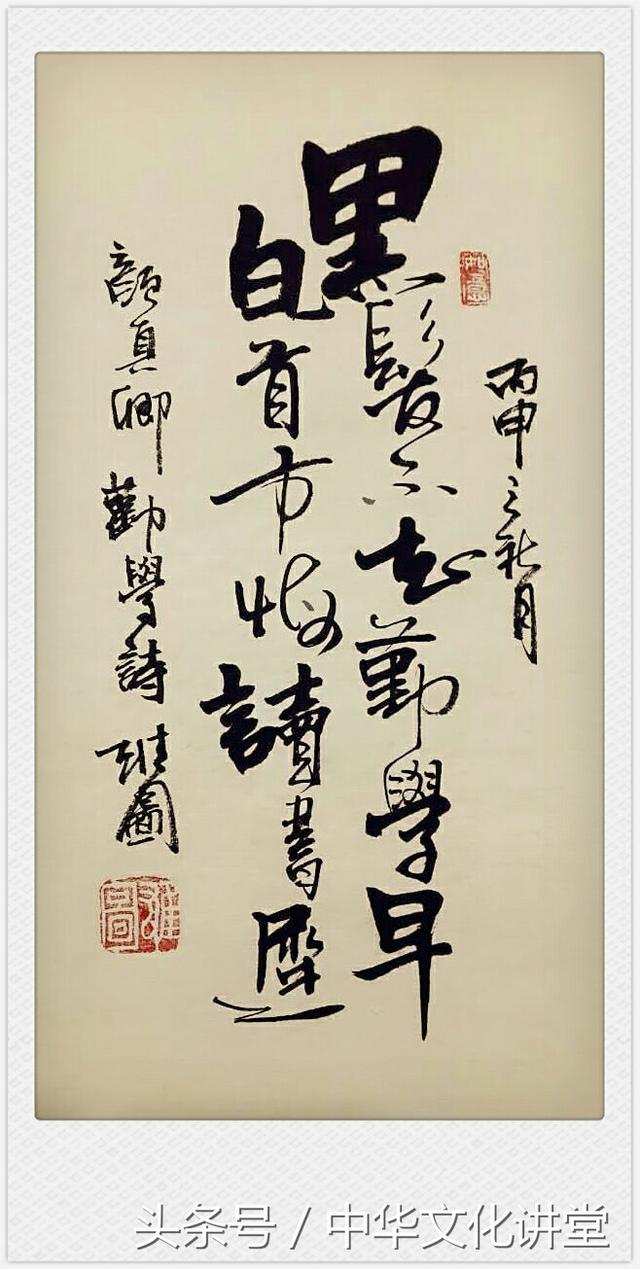 如意
丙申之秋月
黑髮不知勤學早
白首方悔讀書遲
顔真卿勸學詩 雄圖
头条号 / 中华文化讲堂